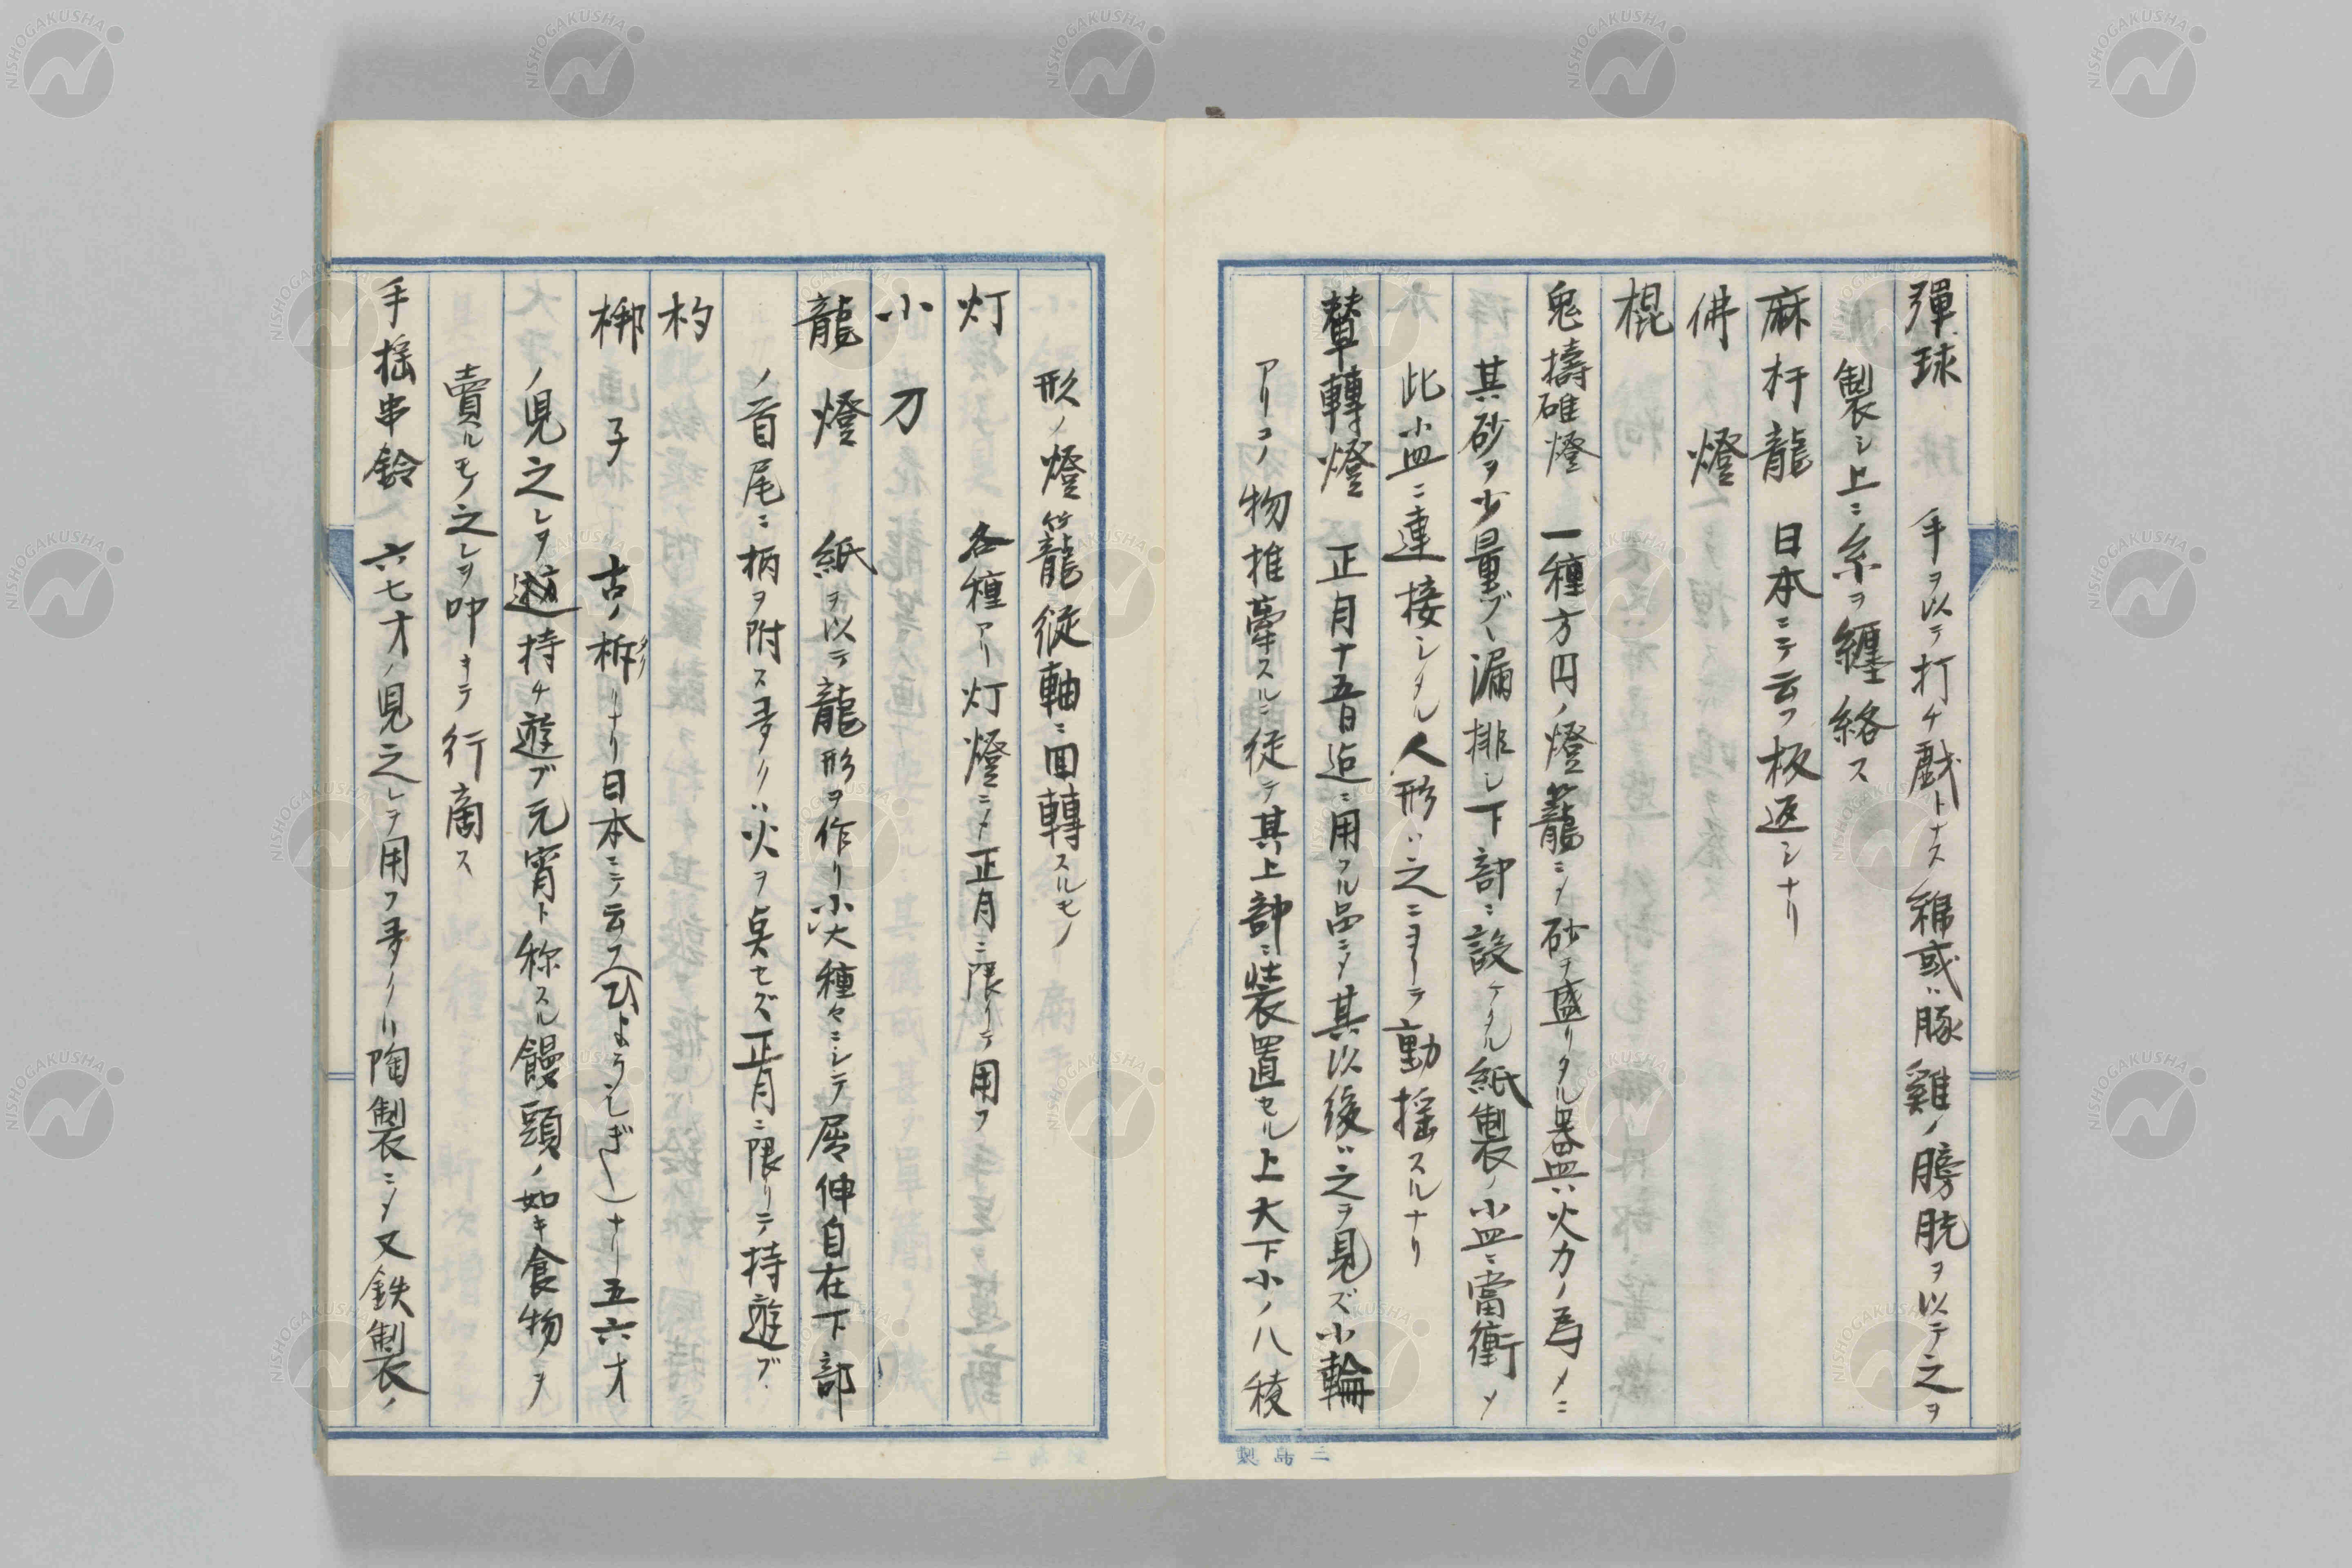 彈球　手ヲ以テ打チ戯トナス綿或ハ豚雞ノ膀胱ヲ以テ之ヲ
製シ上ニ糸ヲ纏絡ス
麻杆龍　日本ニテ云フ板返シナリ
佛燈
棍
鬼擣碓燈　一種方円ノ燈籠ニメ砂ヲ盛リタル器皿ハ火力ノ為メニ
其砂ヲ少量ヅヽ漏排シ下部ニ設ケタル紙製ノ小皿ニ當衝メ
此小皿ニ連接シタル人形ハ之ニヨリテ動揺スルナリ
輦轉燈　正月十五日迄ニ用フル品ニメ其以後ハ之ヲ見ズ小輪
アリコノ物推牽スルニ従テ其上部ニ装置セル上大下小ノ八稜
形ノ燈籠縦軸ニ回轉スルモノ
灯　各種アリ灯燈ニメ正月ニ限リテ用フ
小刀
龍燈　紙ヲ以テ龍形ヲ作リ小大種々ニシテ屈伸自在下部
ノ首尾ニ柄ヲ附ス多クハ火ヲ点セズ正月ニ限リテ持遊ブ
杓
梆子　古ノ柝リナリ日本ニテ云フ(ひようしぎ)ナリ五六才
ノ児之レヲ遊持チ遊ブ元宵ト称スル饅頭ノ如キ食物ヲ
賣ルモノ之レヲ叩キテ行商ス
手揺串鈴　六七才ノ児之レヲ用フ多クハ陶製ニメ又鉄製ノ
三島製
NISHOGAKUSHA